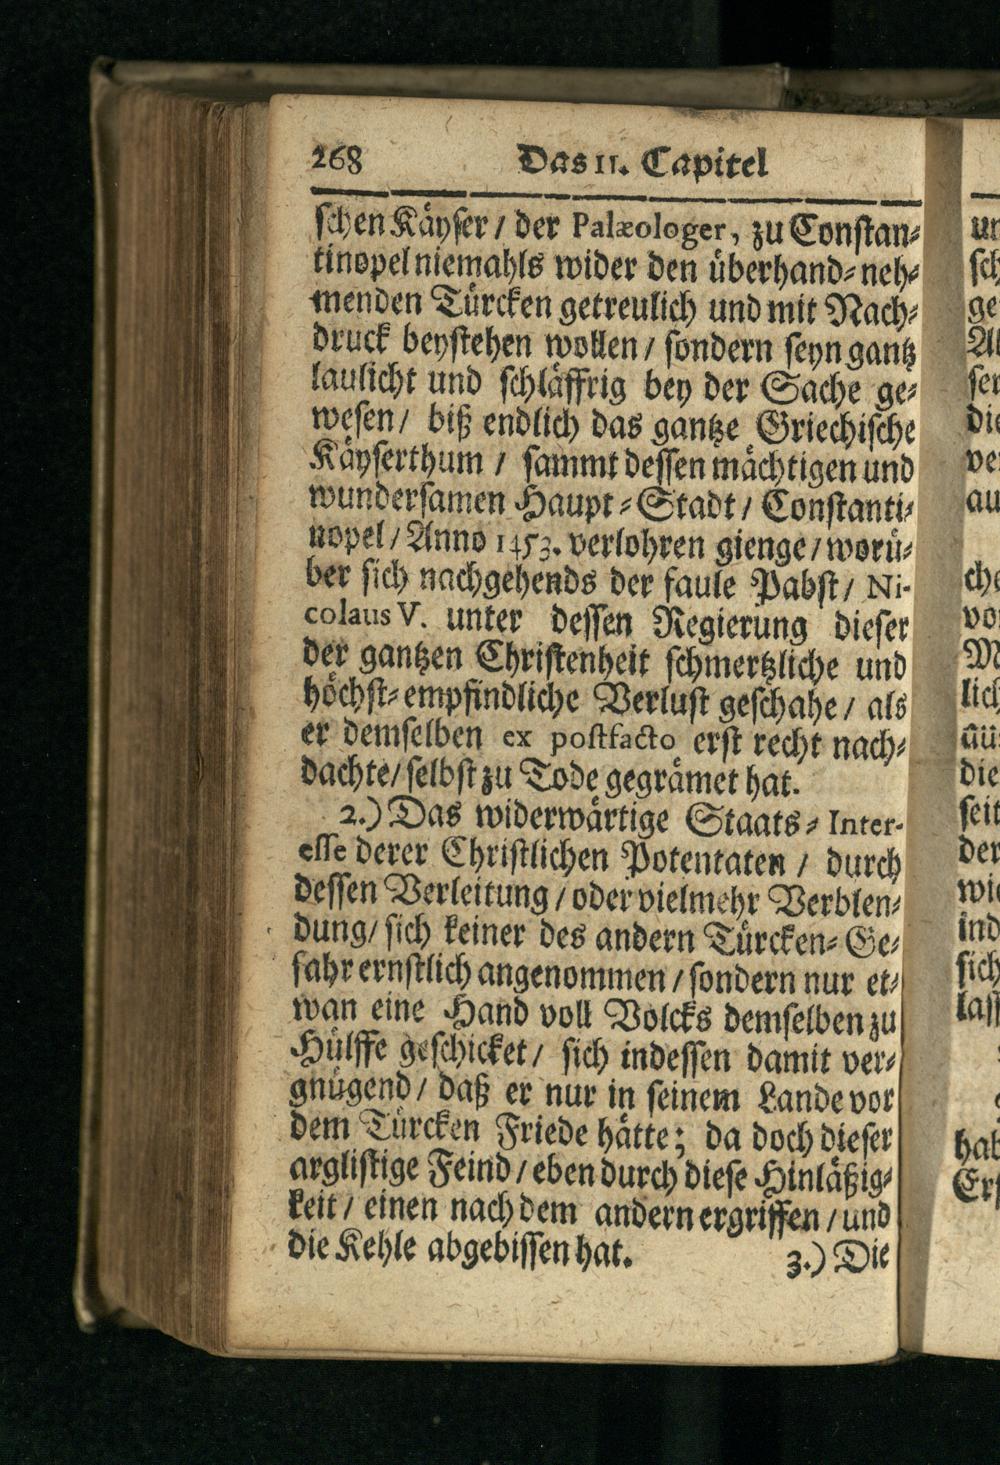 268 Das 11. Capitel
schen Käyser / der Palæologer, zu Constan-
tinopel niemahls wider den überhand-neh-
menden Türcken getreulich und mit Nach-
druck beystehen wollen / sondern seyn gantz
laulicht und schläffrig bey der Sache ge-
wesen / biß endlich das gantze Griechische
Käyserthum / sammt dessen mächtigen und
wundersamen Haupt-Stadt / Constanti-
nopel / Anno 1453. verlohren gienge / worü-
ber sich nachgehends der faule Pabst / Ni-
colaus V. unter dessen Regierung dieser
der gantzen Christenheit schmertzliche und
höchst-empfindliche Verlust geschahe / als
er demselben ex postfacto erst recht nach-
dachte / selbst zu Tode gegrämet hat.
2.) Das widerwärtige Staats-Inter-
esse derer Christlichen Potentaten / durch
dessen Verleitung / oder vielmehr Verblen-
dung / sich keiner des andern Türcken-Ge-
fahr ernstlich angenommen / sondern nur et-
wan eine Hand voll Volcks demselben zu
Hülffe geschicket / sich indessen damit ver-
gnügend / daß er nur in seinem Lande vor
dem Türcken Friede hätte; da doch dieser
arglistige Feind / eben durch diese Hinläßig-
keit / einen nach dem andern ergriffen / und
die Kehle abgebissen hat.
3.) Die